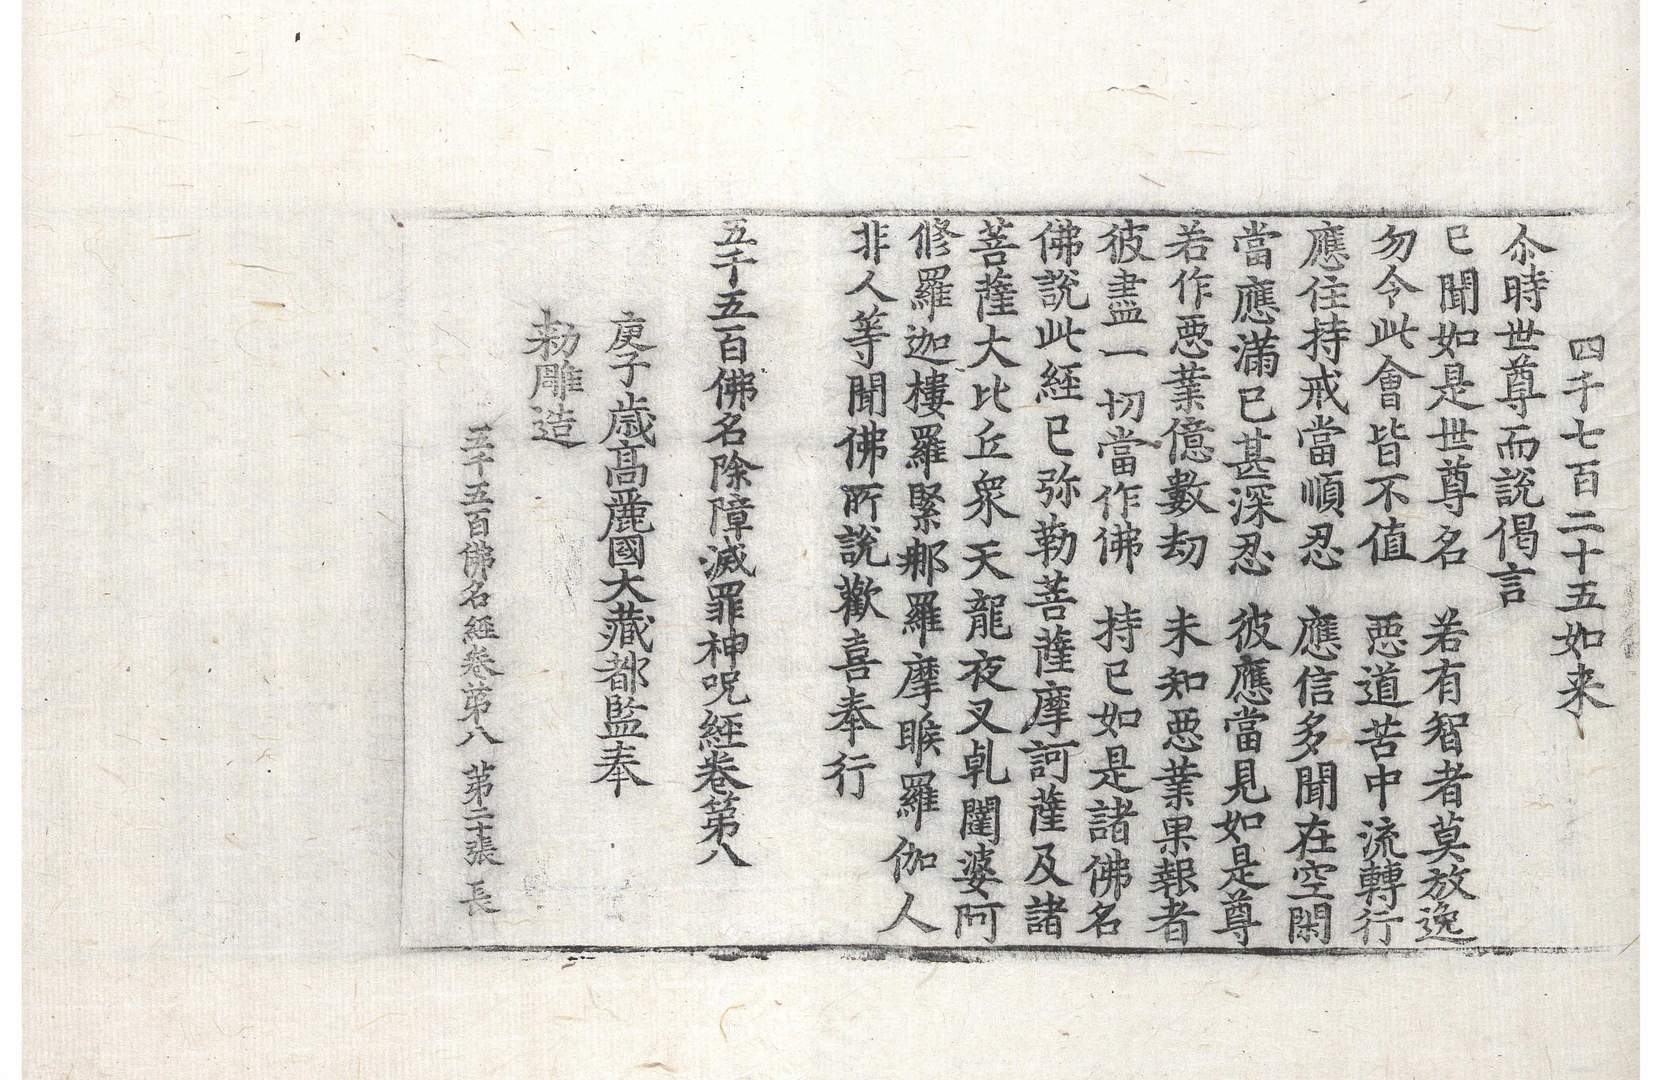 四千七百二十五如来
尒時世尊而說偈言
巳聞如是世尊名　若有智者莫放逸
勿令此會皆不值　惡道苦中流轉行
應住持戒當順忍　應信多聞在空閑
當應滿巳甚深忍　彼應當見如是尊
若作惡業億數劫　未知惡業果報者
彼盡一切當作佛　持巳如是諸佛名
佛說此經巳弥勒菩薩摩訶薩及諸
菩薩大比丘衆天龍夜叉乹闥婆阿
修羅迦樓羅緊那羅摩睺羅伽人
非人等聞佛所說歡喜奉行
五千五百佛名除障滅罪神呪經卷第八
庚子歲高麗國大藏都監奉
勅雕造
五千五百佛名經卷第八　第二十張　長